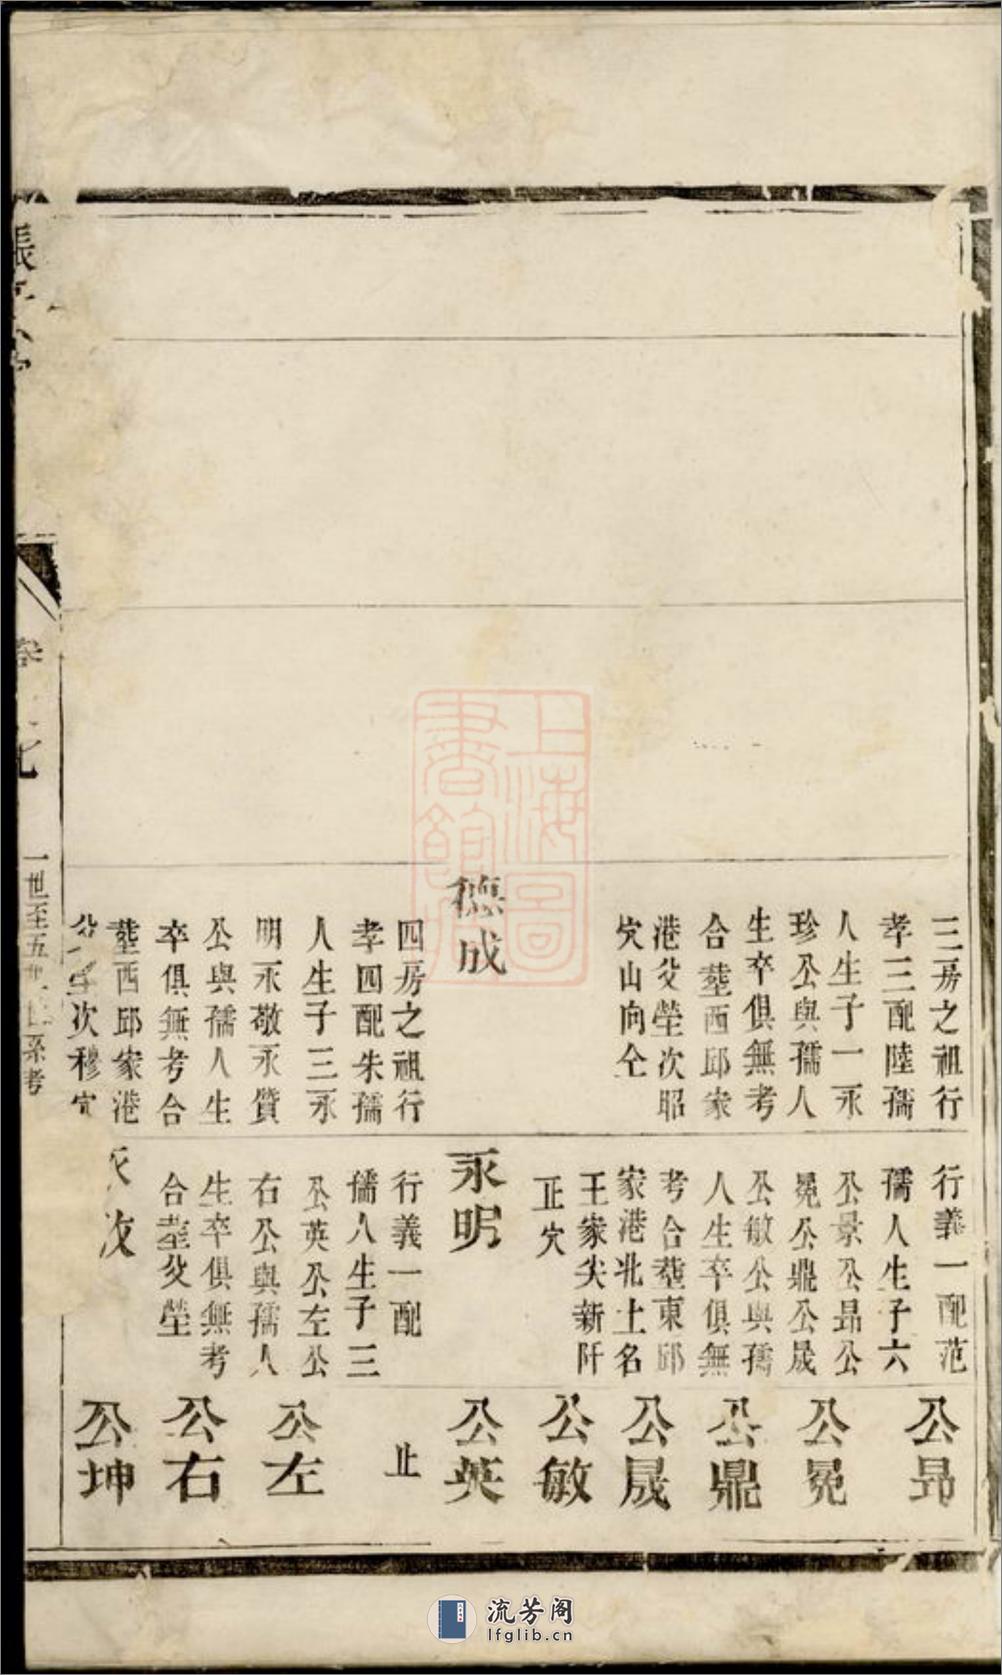 三房之祖行
孝三配陸孺
人生子一永
珍公與孺人
生卒俱無考
合塟西邱家
港父塋次昭
穴山向仝
德成
四房之祖行
孝四配朱孺
人生子三永
明永敬永贊
公與孺人生
卒俱無考合
塟西邱家港
次穆穴
行義一配范
孺人生子六
公景公昂公
冕公鼎公晟
公敏公與孺
人生卒俱無
考合塟東邱
家港北土名
王家尖新阡
正穴
永明
行義一配
孺人生子三
公英公左公
右公與孺人
生卒俱無考
合塟父塋
公昂
公冕
公鼎
公晟
公敏
公英
止
公左
公右
公坤
張
卷
七
一世至五世世系考
上海圖書館藏
流芳阁
lfglib.cn